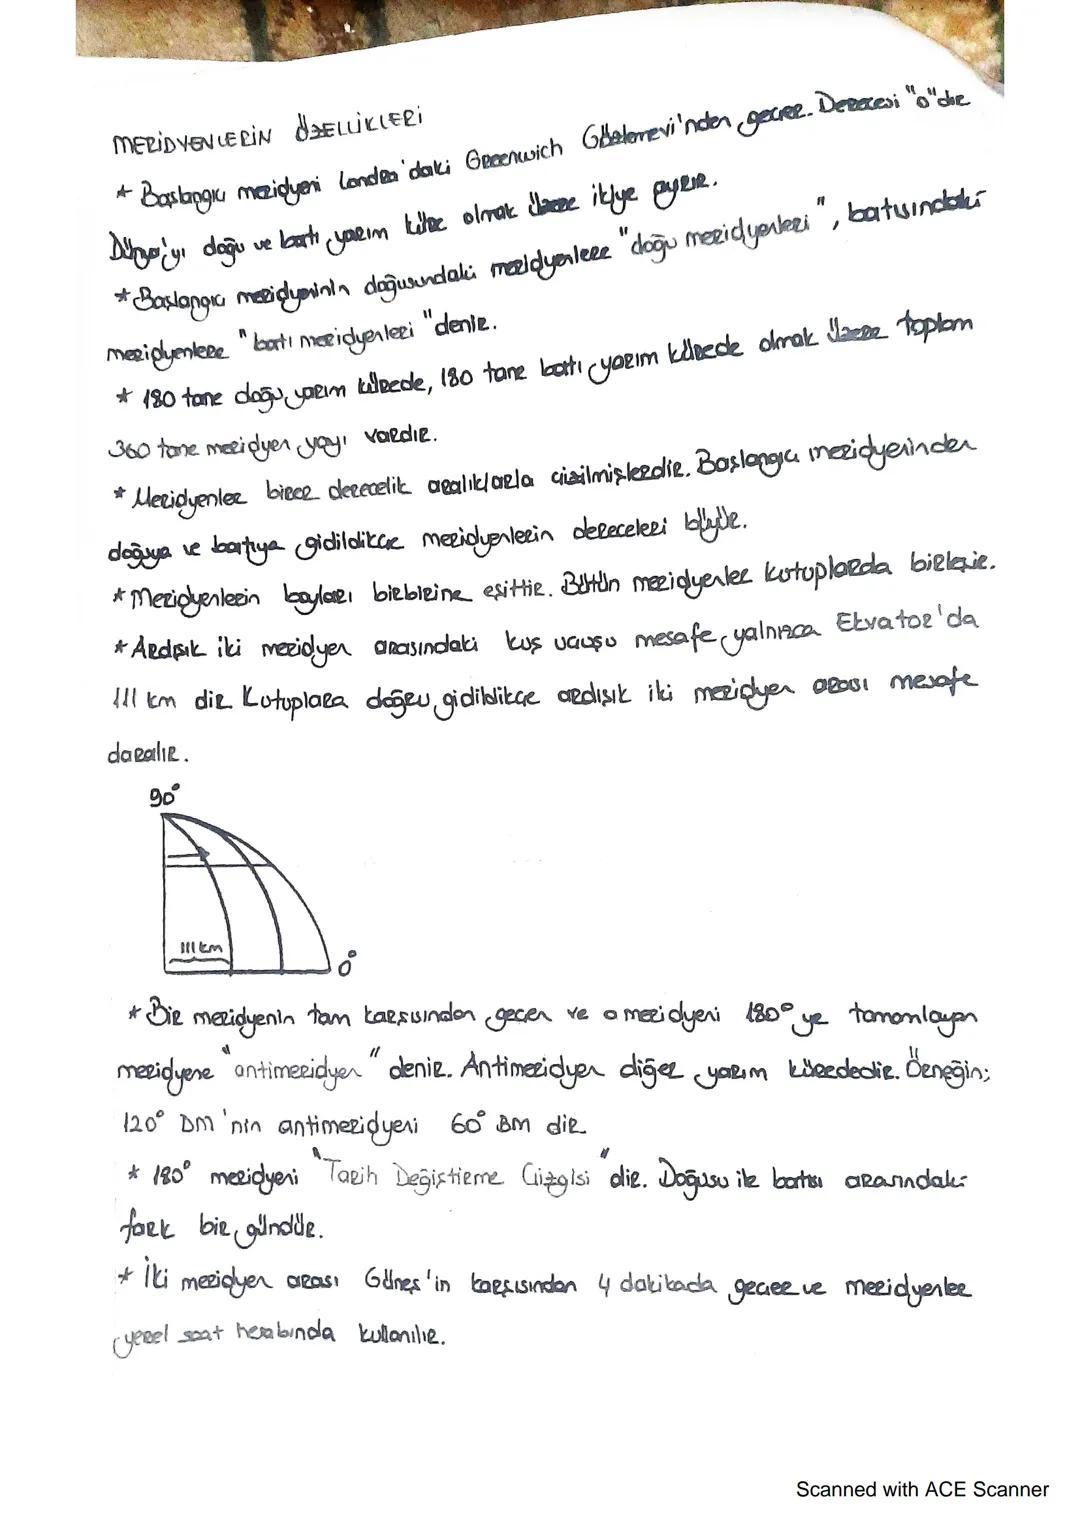 MERİDYENLERİN ÖZELLİKLERİ
* Başlangıç meridyeni Londra'daki Greenwich Gözlemevi'nden geçer. Derecesi "0"dır
Dünya'yı doğu ve batı yarım küre olmak üzere ikiye ayırır.
* Başlangıç meridyeninin doğusundaki meridyenlere "doğu meridyenleri", batısındaki
meridyenlere "batı meridyenleri" denir.
* 180 tane doğu yarım kürede, 180 tane batı yarım kürede olmak üzere toplam
360 tane meridyen yayı vardır.
* Meridyenler birer derecelik aralıklarla çizilmişlerdir. Başlangıç meridyeninden
doğuya ve batıya gidildikçe meridyenlerin dereceleri büyür.
* Meridyenlerin boyları birbirine eşittir. Bütün meridyenler kutuplarda birleşir.
* Ardışık iki meridyen arasındaki kuş uçuşu mesafe yalnızca Ekvator'da
111 km dir Kutuplara doğru gidildikçe ardışık iki meridyen arası mesafe
daralır.
90°
111 km
0°
* Bir meridyenin tam karşısından geçen ve o meridyeni 180° ye tamamlayan
meridyene "antimeridyen" denir. Antimeridyen diğer yarım kürededir. Örneğin;
120° DM'nin antimeridyeni 60° BM dir
* 180° meridyeni "Tarih Değiştirme Çizgisi"dir. Doğusu ile batısı arasındaki
fark bir gündür.
* İki meridyen arası Güneş'in karşısından 4 dakikada geçer ve meridyenler
yerel saat hesabında kullanılır.
Scanned with ACE Scanner